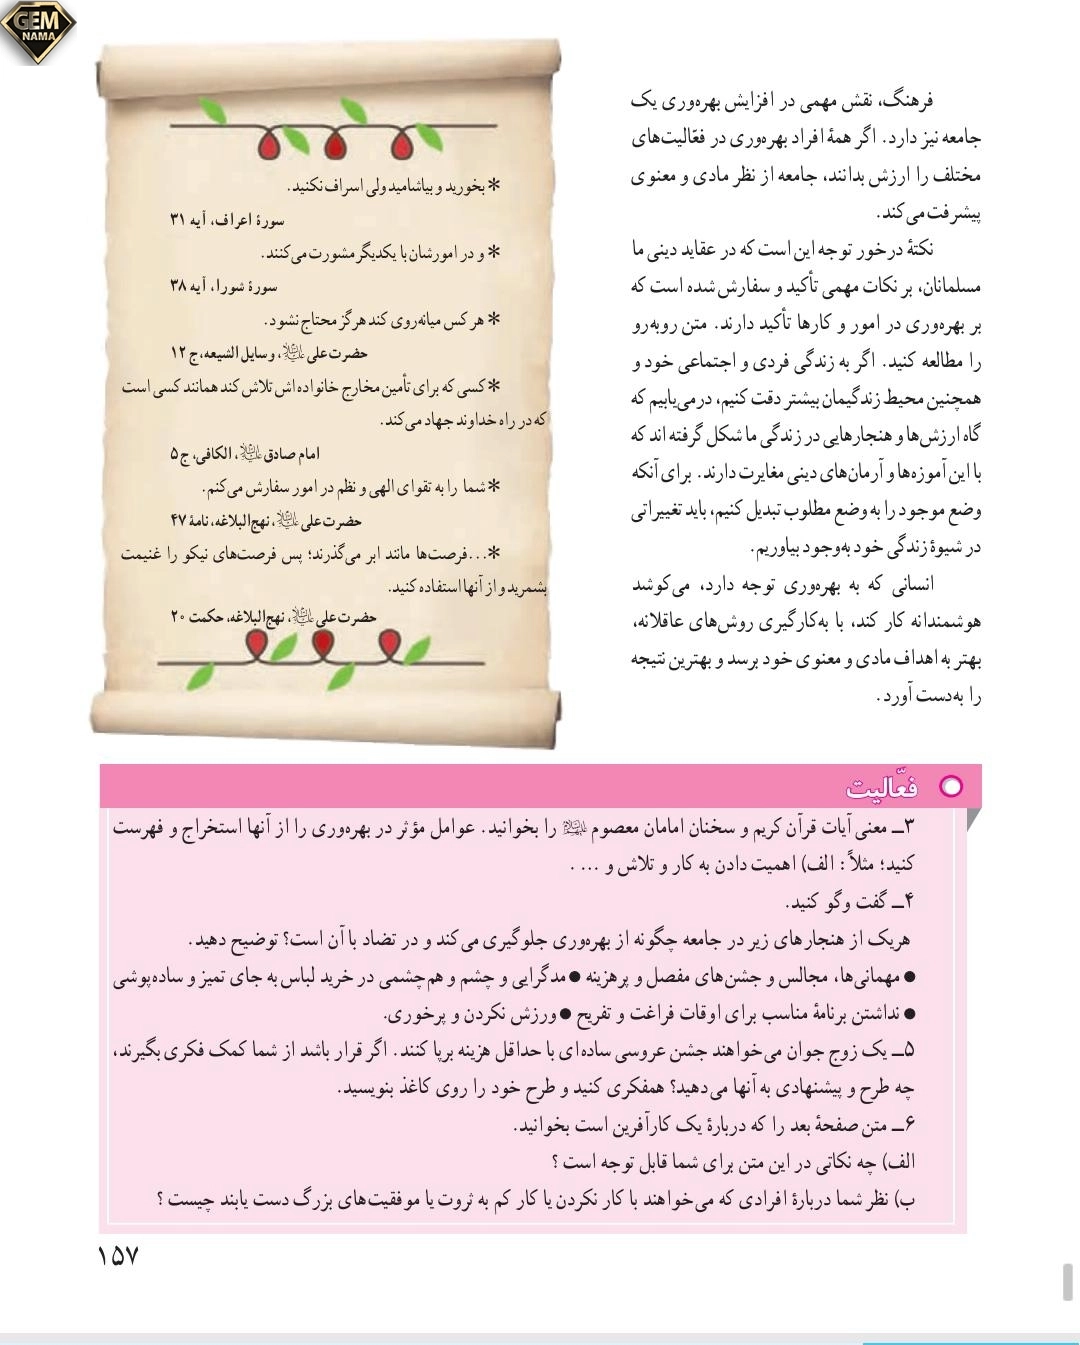 GEM
NAMA
فرهنگ، نقش مهمی در افزایش بهره‌وری یک
جامعه نیز دارد. اگر همهٔ افراد بهره‌وری در فعّالیت‌های
مختلف را ارزش بدانند، جامعه از نظر مادی و معنوی
پیشرفت می‌کند.
نکتهٔ درخور توجه این است که در عقاید دینی ما
مسلمانان، بر نکات مهمی تأکید و سفارش شده است که
بر بهره‌وری در امور و کارها تأکید دارند. متن روبه‌رو
را مطالعه کنید. اگر به زندگی فردی و اجتماعی خود و
همچنین محیط زندگیمان بیشتر دقت کنیم، درمی‌یابیم که
گاه ارزش‌ها و هنجارهایی در زندگی ما شکل گرفته اند که
با این آموزه‌ها و آرمان‌های دینی مغایرت دارند. برای آنکه
وضع موجود را به وضع مطلوب تبدیل کنیم، باید تغییراتی
در شیوهٔ زندگی خود به‌وجود بیاوریم.
انسانی که به بهره‌وری توجه دارد، می‌کوشد
هوشمندانه کار کند، با به‌کارگیری روش‌های عاقلانه،
بهتر به اهداف مادی و معنوی خود برسد و بهترین نتیجه
را به‌دست آورد.
* بخورید و بیاشامید ولی اسراف نکنید.
سورهٔ اعراف، آیه ۳۱
* و در امورشان با یکدیگر مشورت می‌کنند.
سورهٔ شورا، آیه ۳۸
* هر کس میانه‌روی کند هرگز محتاج نشود.
حضرت علی علیه‌السلام، وسایل الشیعه، ج ۱۲
* کسی که برای تأمین مخارج خانواده اش تلاش کند همانند کسی است
که در راه خداوند جهاد می‌کند.
امام صادق علیه‌السلام، الکافی، ج ۵
* شما را به تقوای الهی و نظم در امور سفارش می‌کنم.
حضرت علی علیه‌السلام، نهج‌البلاغه، نامهٔ ۴۷
* ...فرصت‌ها مانند ابر می‌گذرند؛ پس فرصت‌های نیکو را غنیمت
بشمرید و از آنها استفاده کنید.
حضرت علی علیه‌السلام، نهج‌البلاغه، حکمت ۲۰
فعّالیت
۳ــ معنی آیات قرآن کریم و سخنان امامان معصوم علیهم‌السلام را بخوانید. عوامل مؤثر در بهره‌وری را از آنها استخراج و فهرست
کنید؛ مثلاً: الف) اهمیت دادن به کار و تلاش و ... .
۴ــ گفت وگو کنید.
هریک از هنجارهای زیر در جامعه چگونه از بهره‌وری جلوگیری می‌کند و در تضاد با آن است؟ توضیح دهید.
● مهمانی‌ها، مجالس و جشن‌های مفصل و پرهزینه ● مدگرایی و چشم و هم‌چشمی در خرید لباس به جای تمیز و ساده‌پوشی
● نداشتن برنامهٔ مناسب برای اوقات فراغت و تفریح ● ورزش نکردن و پرخوری.
۵ــ یک زوج جوان می‌خواهند جشن عروسی ساده‌ای با حداقل هزینه برپا کنند. اگر قرار باشد از شما کمک فکری بگیرند،
چه طرح و پیشنهادی به آنها می‌دهید؟ همفکری کنید و طرح خود را روی کاغذ بنویسید.
۶ــ متن صفحهٔ بعد را که دربارهٔ یک کارآفرین است بخوانید.
الف) چه نکاتی در این متن برای شما قابل توجه است؟
ب) نظر شما دربارهٔ افرادی که می‌خواهند با کار نکردن یا کار کم به ثروت یا موفقیت‌های بزرگ دست یابند چیست؟
۱۵۷